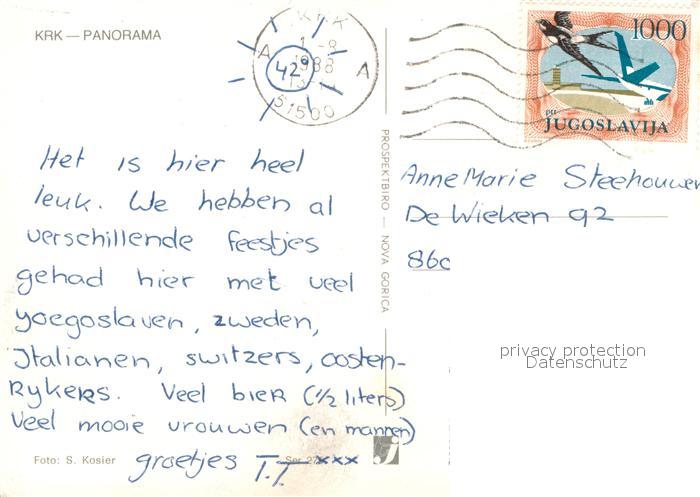 KRK — PANORAMA
KRK
1-8
1988
13
A A
51500
42°
1000
ptt
JUGOSLAVIJA
Het is hier heel
leuk. We hebben al
verschillende feestjes
gehad hier met veel
yoegoslaven, zweden,
Italianen, switzers, oosten-
Rijkers. Veel bier (1/2 liters)
Veel mooie vrouwen (en mannen)
groetjes T.T. xxx
Foto: S. Kosier
PROSPEKTBIRO — NOVA GORICA
AnneMarie Steehouwer
De Wieken 92
86c
privacy protection
Datenschutz